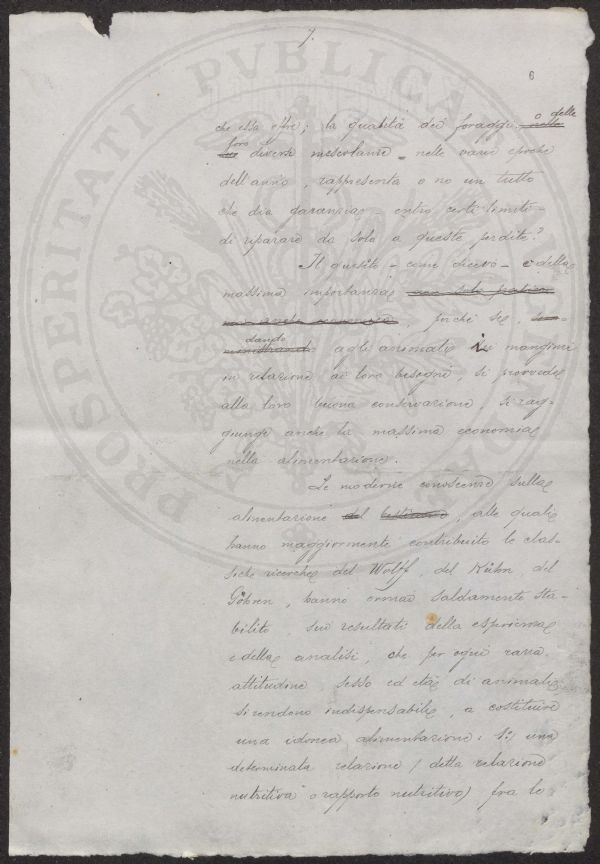 7.
6
che essa offre; la qualità dei foraggi, o delle
loro diverse mescolanze - nelle varie epoche
dell'anno, rappresenta o no un tutto
che dia garanzia - entro certi limiti -
di riparare da solo a queste perdite?
Il quesito - come dicevo - è della
massima importanza non solo pratica
ma anche economica, perché se,
dando agli animali i mangimi
in relazione ai loro bisogni, si provvede
alla loro buona conservazione, si rag-
giunge anche la massima economia
nella alimentazione.
Le moderne conoscenze sulla
alimentazione del bestiame, alle quali
hanno maggiormente contribuito le clas-
siche ricerche del Wolff, del Kühn, del
Göhren, hanno ormai saldamente sta-
bilito, sui resultati della esperienza
e della analisi, che per ogni razza,
attitudine, sesso ed età di animali,
si rendono indispensabili, a costituire
una idonea alimentazione: 1.º una
determinata relazione (detta relazione
nutritiva o rapporto nutritivo) fra le
PROSPERITATI PVBLICAE